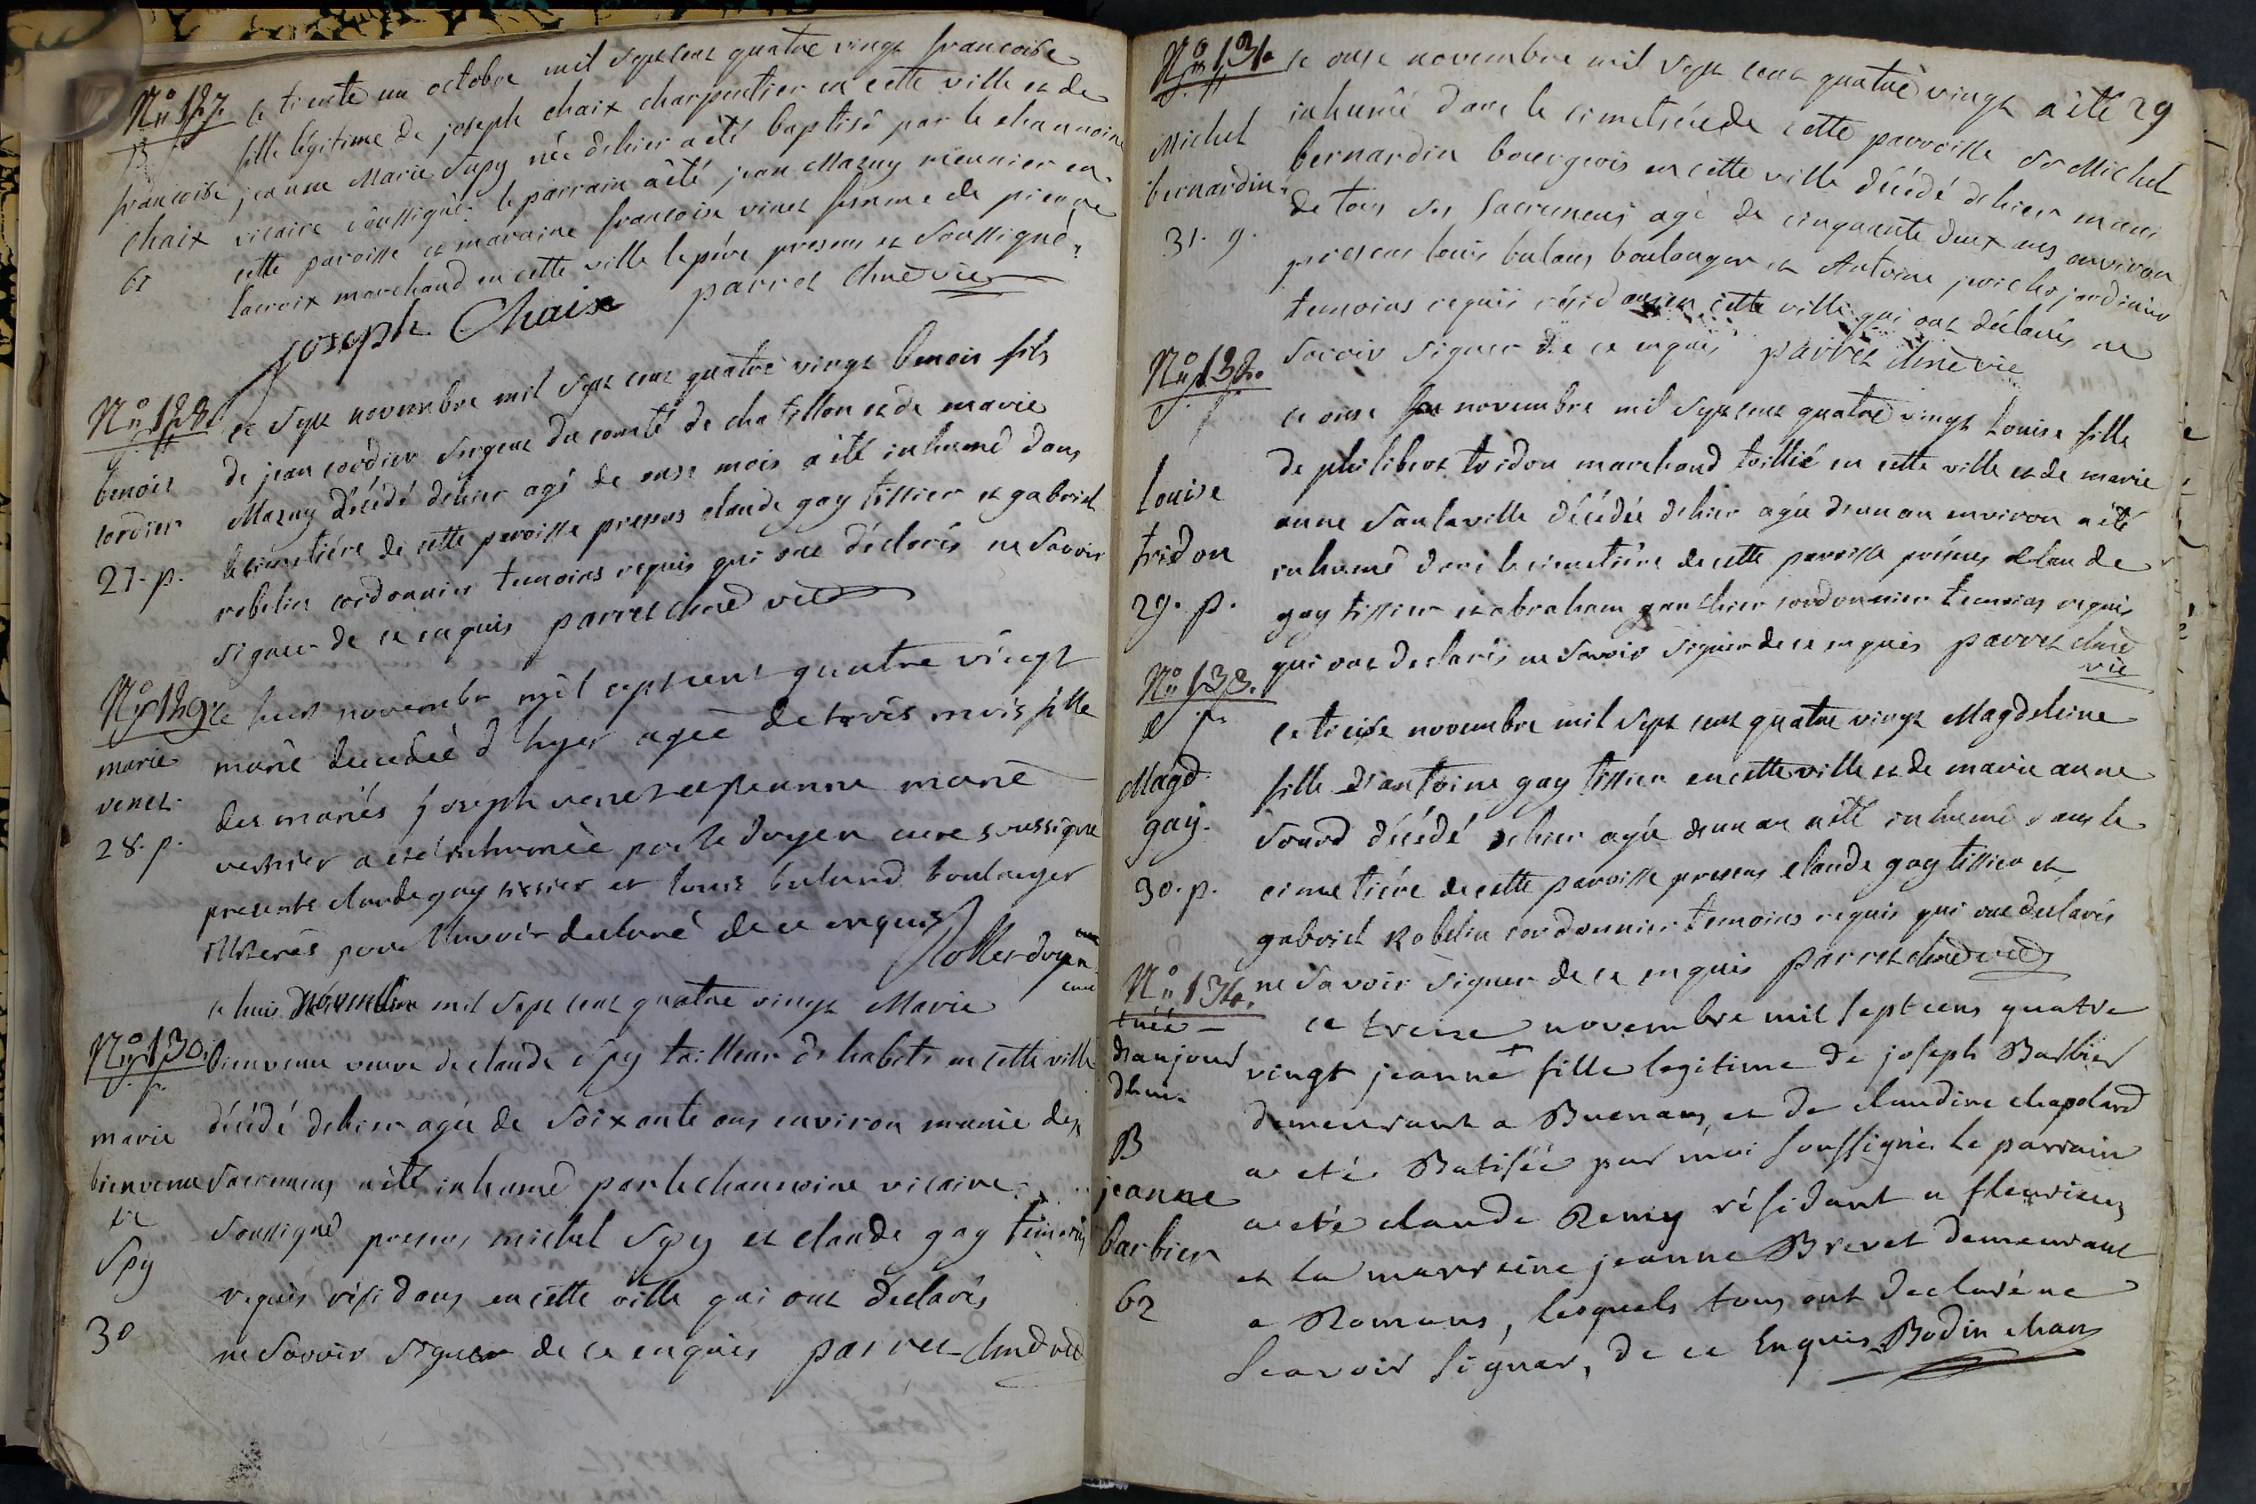 No 127.
B
francoise
chaix
61
le trente un octobre mil sept cent quatre vingt francoise
fille légitime de joseph chaix charpentier en cette ville et de
jeanne Marie Supy née dehier a été baptisé par le chanoine
vicaire soussigné. le parrain a été jean Mazuy meunier en
cette paroisse et maraine francoise vinet femme de pierre
lacroix marchand en cette ville le père present et soussigné
joseph Chaix parret chne vic
No 128.
benoit
cordier
27. p.
ce sept novembre mil sept cent quatre vingt benoit fils
de jean cordier sergent du comté de chatillon et de marie
Mazuy décédé dehier agé de onze mois a été inhumé dans
le cimetière de cette paroisse presens claude gay tissier et gabriel
robelin cordonnier temoins requis qui ont déclarés ne savoir
signer de ce enquis parret chne vic
No 129
marie
venet
28. p.
le huit novembre mil sept cent quatre vingt
marie decedeé d hyer agée de trois mois fille
des mariés joseph venet et jeanne marie
verssier a été inhumèe par le doyen curé soussigné
presents claude gay tissier et louis buland boulanger
illiterés pour l'avoir declaré de ce enquis
doyen curé
No 130.
marie
bienvenu
Spy
30
le huit novembre mil sept cent quatre vingt Marie
bienvenu veuve de claude Spy tailleur d habits en cette ville
décédé dehier agée de soixante ans environ munie des
sacremens a été inhumé par le chanoine vicaire
soussigné presens michel Spy et claude gay temoins
requis résidans en cette ville qui ont déclarés
ne savoir signer de ce enquis parret chne vic
29
No 131.
Michel
bernardin
31. g.
le onze novembre mil sept cent quatre vingt a été
inhumé dans le cimetière de cette parroisse sr Michel
bernardin bourgeois en cette ville décédé dehier muni
de tous ses sacremens agé de cinquante deux ans environ
presens louis buland boulanger et Antoine jardinier
temoins requis résidans en cette ville qui ont déclarés ne
savoir signer de ce enquis parret chne vic
No 132.
louise
tridon
29. p.
ce onze novembre mil sept cent quatre vingt louise fille
de philibert tridon marchand toillié en cette ville et de marie
anne Santaville décédée dehier agée d'un an environ a été
inhumé dans le cimetière de cette paroisse présens claude
gay tissier et abraham gauthier cordonnier temoins requis
qui ont declarés ne savoir signer de ce enquis parret chne
vic
No 133.
Magd.
gay.
30. p.
ce treize novembre mil sept cent quatre vingt Magdeleine
fille d'antoine gay tissier en cette ville et de marie anne
Sourd décédé dehier agée d'un an a été inhumé dans le
cimetière de cette paroisse presens claude gay tissier et
gabriel Robelin cordonnier temoins requis qui ont declarés
ne savoir signer de ce enquis parret chne vic
No 134.
née
d'aujourd
dhui
B
jeanne
barbier
62
ce treize novembre mil sept cens quatre
vingt jeanne + fille legitime de joseph Barbier
demeurant a Buenans, et de claudine chapolard
a eté Batisée par moi soussigné. le parrain
a eté claude Remy résidant a fleurieux
et la marreine jeanne Brevet demeurant
a Romans, lesquels tous ont declaré ne
scavoir signer, de ce Enquis Bodin chan